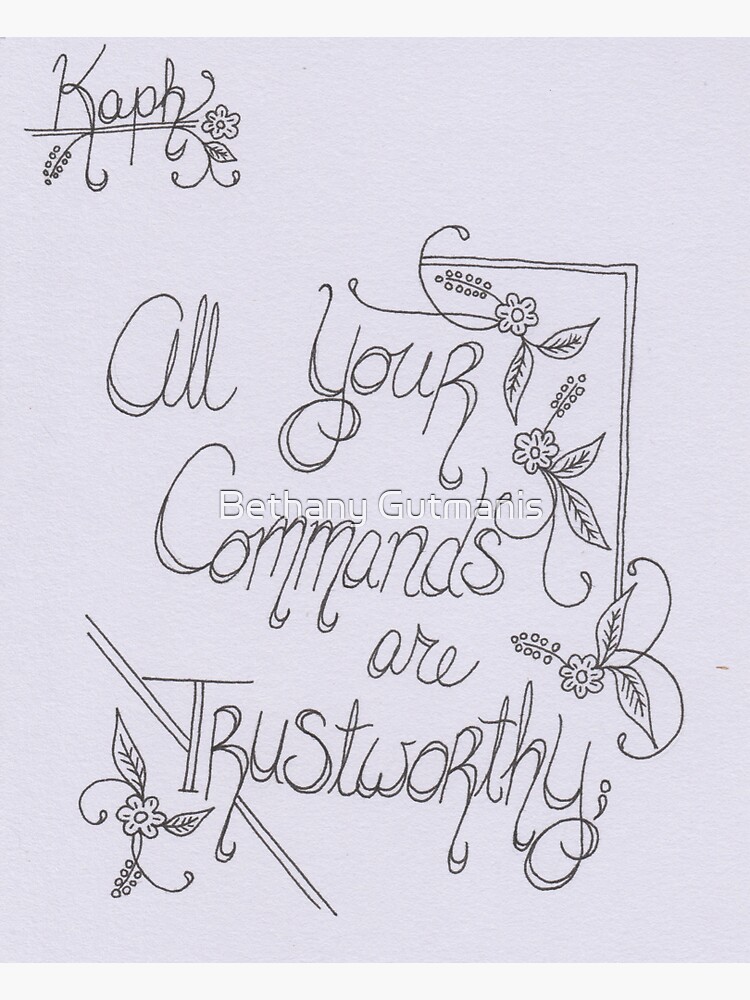 Kaph
All Your
Commands
Bethany Gutmanis
are
Trustworthy;